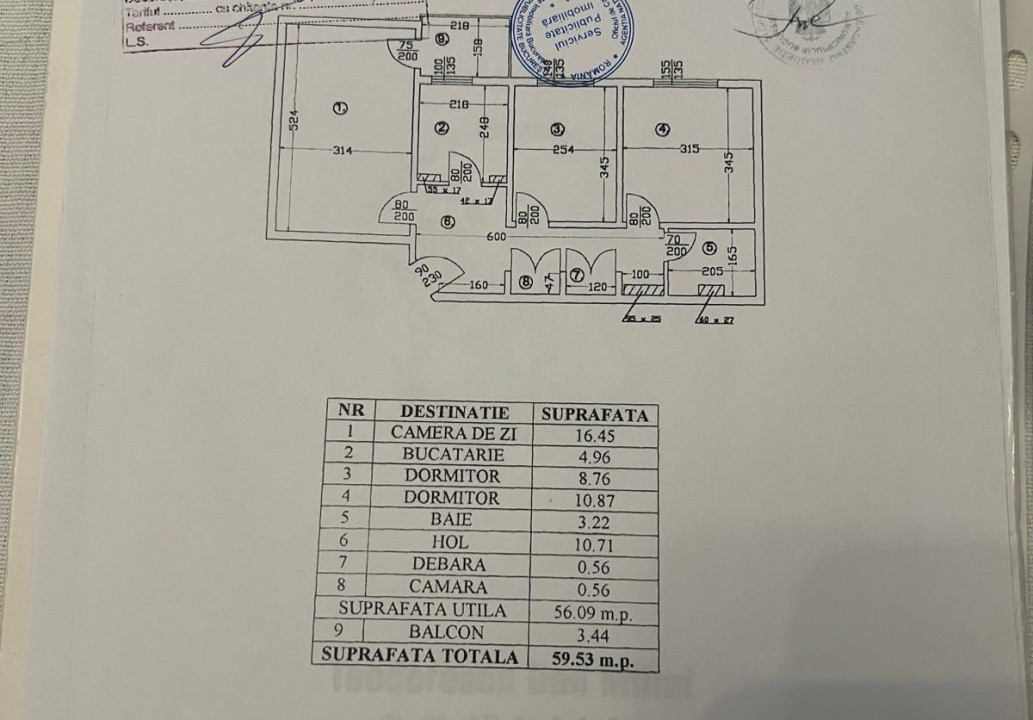 Tariful
cu chitanta
Referent
L.S.
ROMANIA
Serviciul
Publicitate
Imobiliara
218
9
158
75
200
100
135
135
155
135
1
524
314
218
2
248
80
200
55 x 17
42 x 17
3
254
345
4
315
345
80
200
6
600
80
200
80
200
70
200
5
165
205
90
230
160
8
47
7
120
100
95 x 25
60 x 27
NR DESTINATIE SUPRAFATA
1 CAMERA DE ZI 16.45
2 BUCATARIE 4.96
3 DORMITOR 8.76
4 DORMITOR 10.87
5 BAIE 3.22
6 HOL 10.71
7 DEBARA 0.56
8 CAMARA 0.56
SUPRAFATA UTILA 56.09 m.p.
9 BALCON 3.44
SUPRAFATA TOTALA 59.53 m.p.